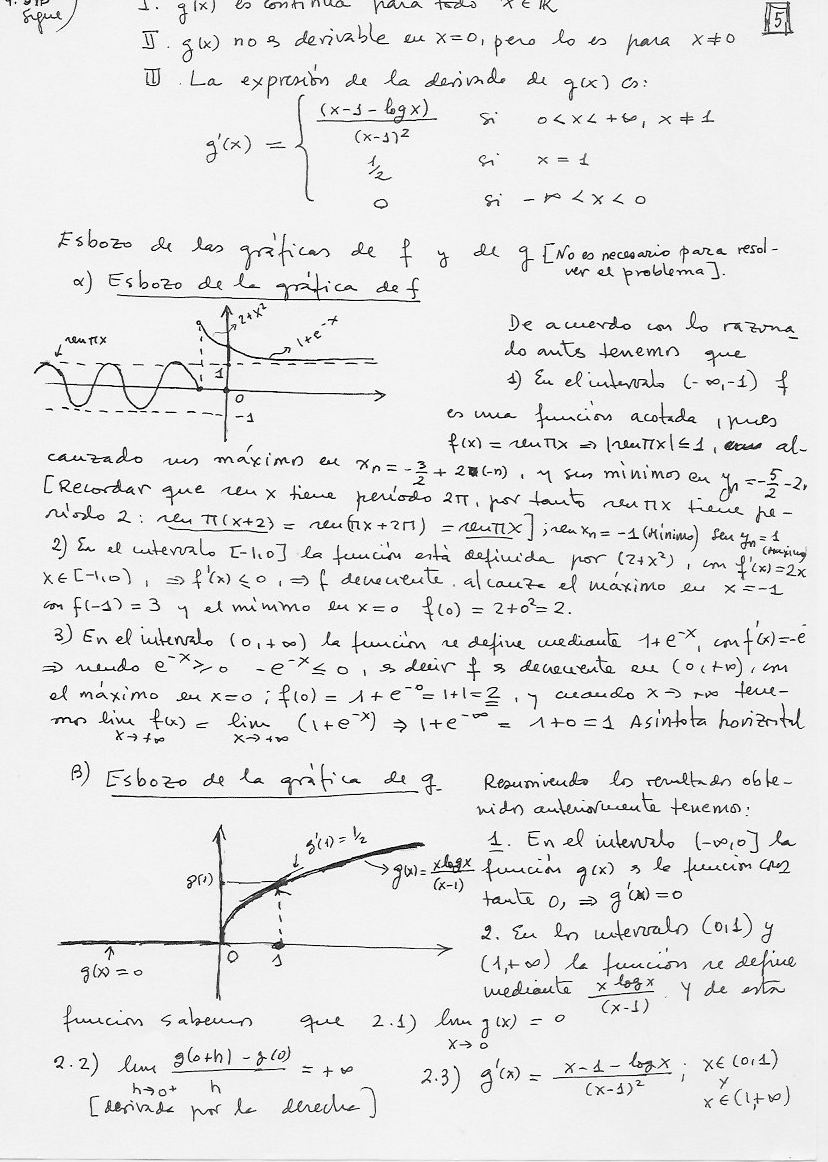 Sigue)
I. g(x) es continua para todo x∈ℝ
5
II. g(x) no es derivable en x=0, pero lo es para x≠0
III. La expresión de la derivada de g(x) es:
g'(x) = { (x-1-log x)/(x-1)² si 0<x<+∞, x≠1
1/2 si x=1
0 si -∞<x<0
Esbozo de las gráficas de f y de g [No es necesario para resol-
ver el problema].
α) Esbozo de la gráfica de f
sen πx
2+x²
1+e^{-x}
1
0
-1
De acuerdo con lo razona
do antes tenemos que
1) En el intervalo (-∞,-1) f
es una función acotada, pues
f(x) = sen πx ⇒ |sen πx| ≤ 1, al-
canzado sus máximos en x_n = -3/2 + 2(-n), y sus mínimos en y_n = -5/2 - 2,
[Recordar que sen x tiene período 2π, por tanto sen πx tiene pe-
ríodo 2: sen π(x+2) = sen(πx+2π) = sen πx]; sen x_n = -1 (Mínimo) sen y_n = 1
(Máximo
2) En el intervalo [-1,0] la función está definida por (2+x²), con f'(x)=2x
x∈[-1,0), ⇒ f'(x) ≤ 0, ⇒ f decreciente. alcanza el máximo en x=-1
con f(-1) = 3 y el mínimo en x=0 f(0) = 2+0² = 2.
3) En el intervalo (0,+∞) la función se define mediante 1+e^{-x}, con f'(x)=-e
⇒ siendo e^{-x} ≥ 0 -e^{-x} ≤ 0, es decir f es decreciente en (0,+∞), con
el máximo en x=0; f(0) = 1+e^{-0} = 1+1 = 2, y cuando x→+∞ tene-
mos lim_{x→+∞} f(x) = lim_{x→+∞} (1+e^{-x}) ⇒ 1+e^{-∞} = 1+0 = 1 Asíntota horizontal
β) Esbozo de la gráfica de g
g'(1) = 1/2
g(1)
g(x) = x log x/(x-1)
0
1
g(x) = 0
Resumiendo los resultados obte-
nidos anteriormente tenemos:
1. En el intervalo (-∞,0] la
función g(x) es la función cons
tante 0, ⇒ g'(x)=0
2. En los intervalos (0,1) y
(1,+∞) la función se define
mediante x log x/(x-1). Y de esta
función sabemos que 2.1) lim_{x→0} g(x) = 0
2.2) lim_{h→0⁺} (g(0+h) - g(0))/h = +∞
[derivada por la derecha]
2.3) g'(x) = (x-1-log x)/(x-1)²; x∈(0,1)
y
x∈(1,+∞)